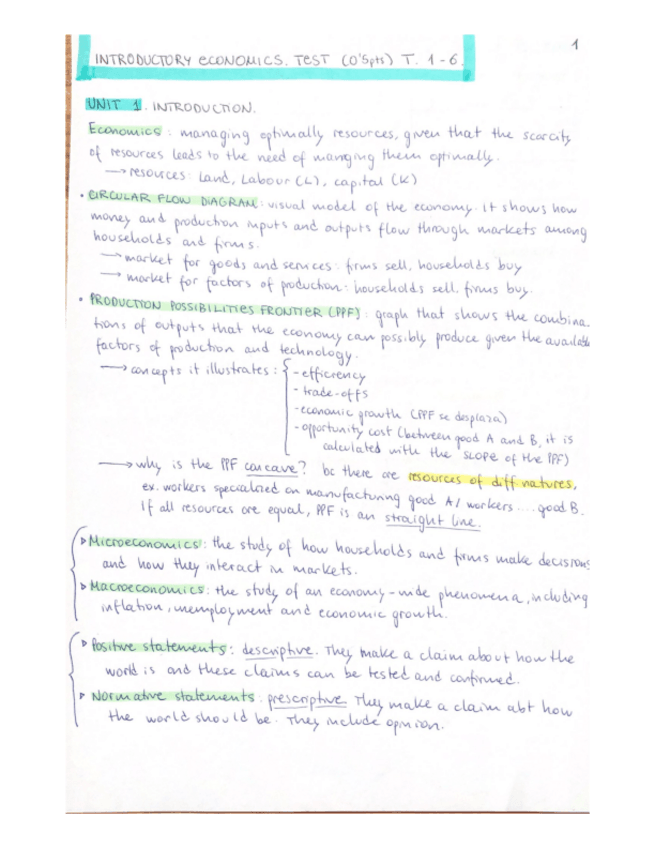 1
INTRODUCTORY ECONOMICS. TEST (0'5pts) T. 1-6.
UNIT 1. INTRODUCTION.
Economics: managing optimally resources, given that the scarcity
of resources leads to the need of manging them optimally.
→ resources: Land, Labour (L), capital (K)
• CIRCULAR FLOW DIAGRAM: visual model of the economy. It shows how
money and production inputs and outputs flow through markets among
households and firms.
→ market for goods and services: firms sell, households buy
→ market for factors of production: households sell, firms buy.
• PRODUCTION POSSIBILITIES FRONTIER (PPF): graph that shows the combina-
tions of outputs that the economy can possibly produce given the available
factors of production and technology.
→ concepts it illustrates: - efficiency
- trade-offs
- economic growth (PPF se desplaza)
- opportunity cost (between good A and B, it is
calculated with the scope of the PPF)
→ why is the PPF concave? bc there are resources of diff natures,
ex. workers specialized on manufacturing good A / workers .... good B.
If all resources are equal, PPF is an straight line.
▹ Microeconomics: the study of how households and firms make decisions
and how they interact in markets.
▹ Macroeconomics: the study of an economy-wide phenomena, including
inflation, unemployment and economic growth.
▹ Positive statements: descriptive. They make a claim about how the
world is and these claims can be tested and confirmed.
▹ Normative statements: prescriptive. They make a claim abt how
the world should be. They include opinion.